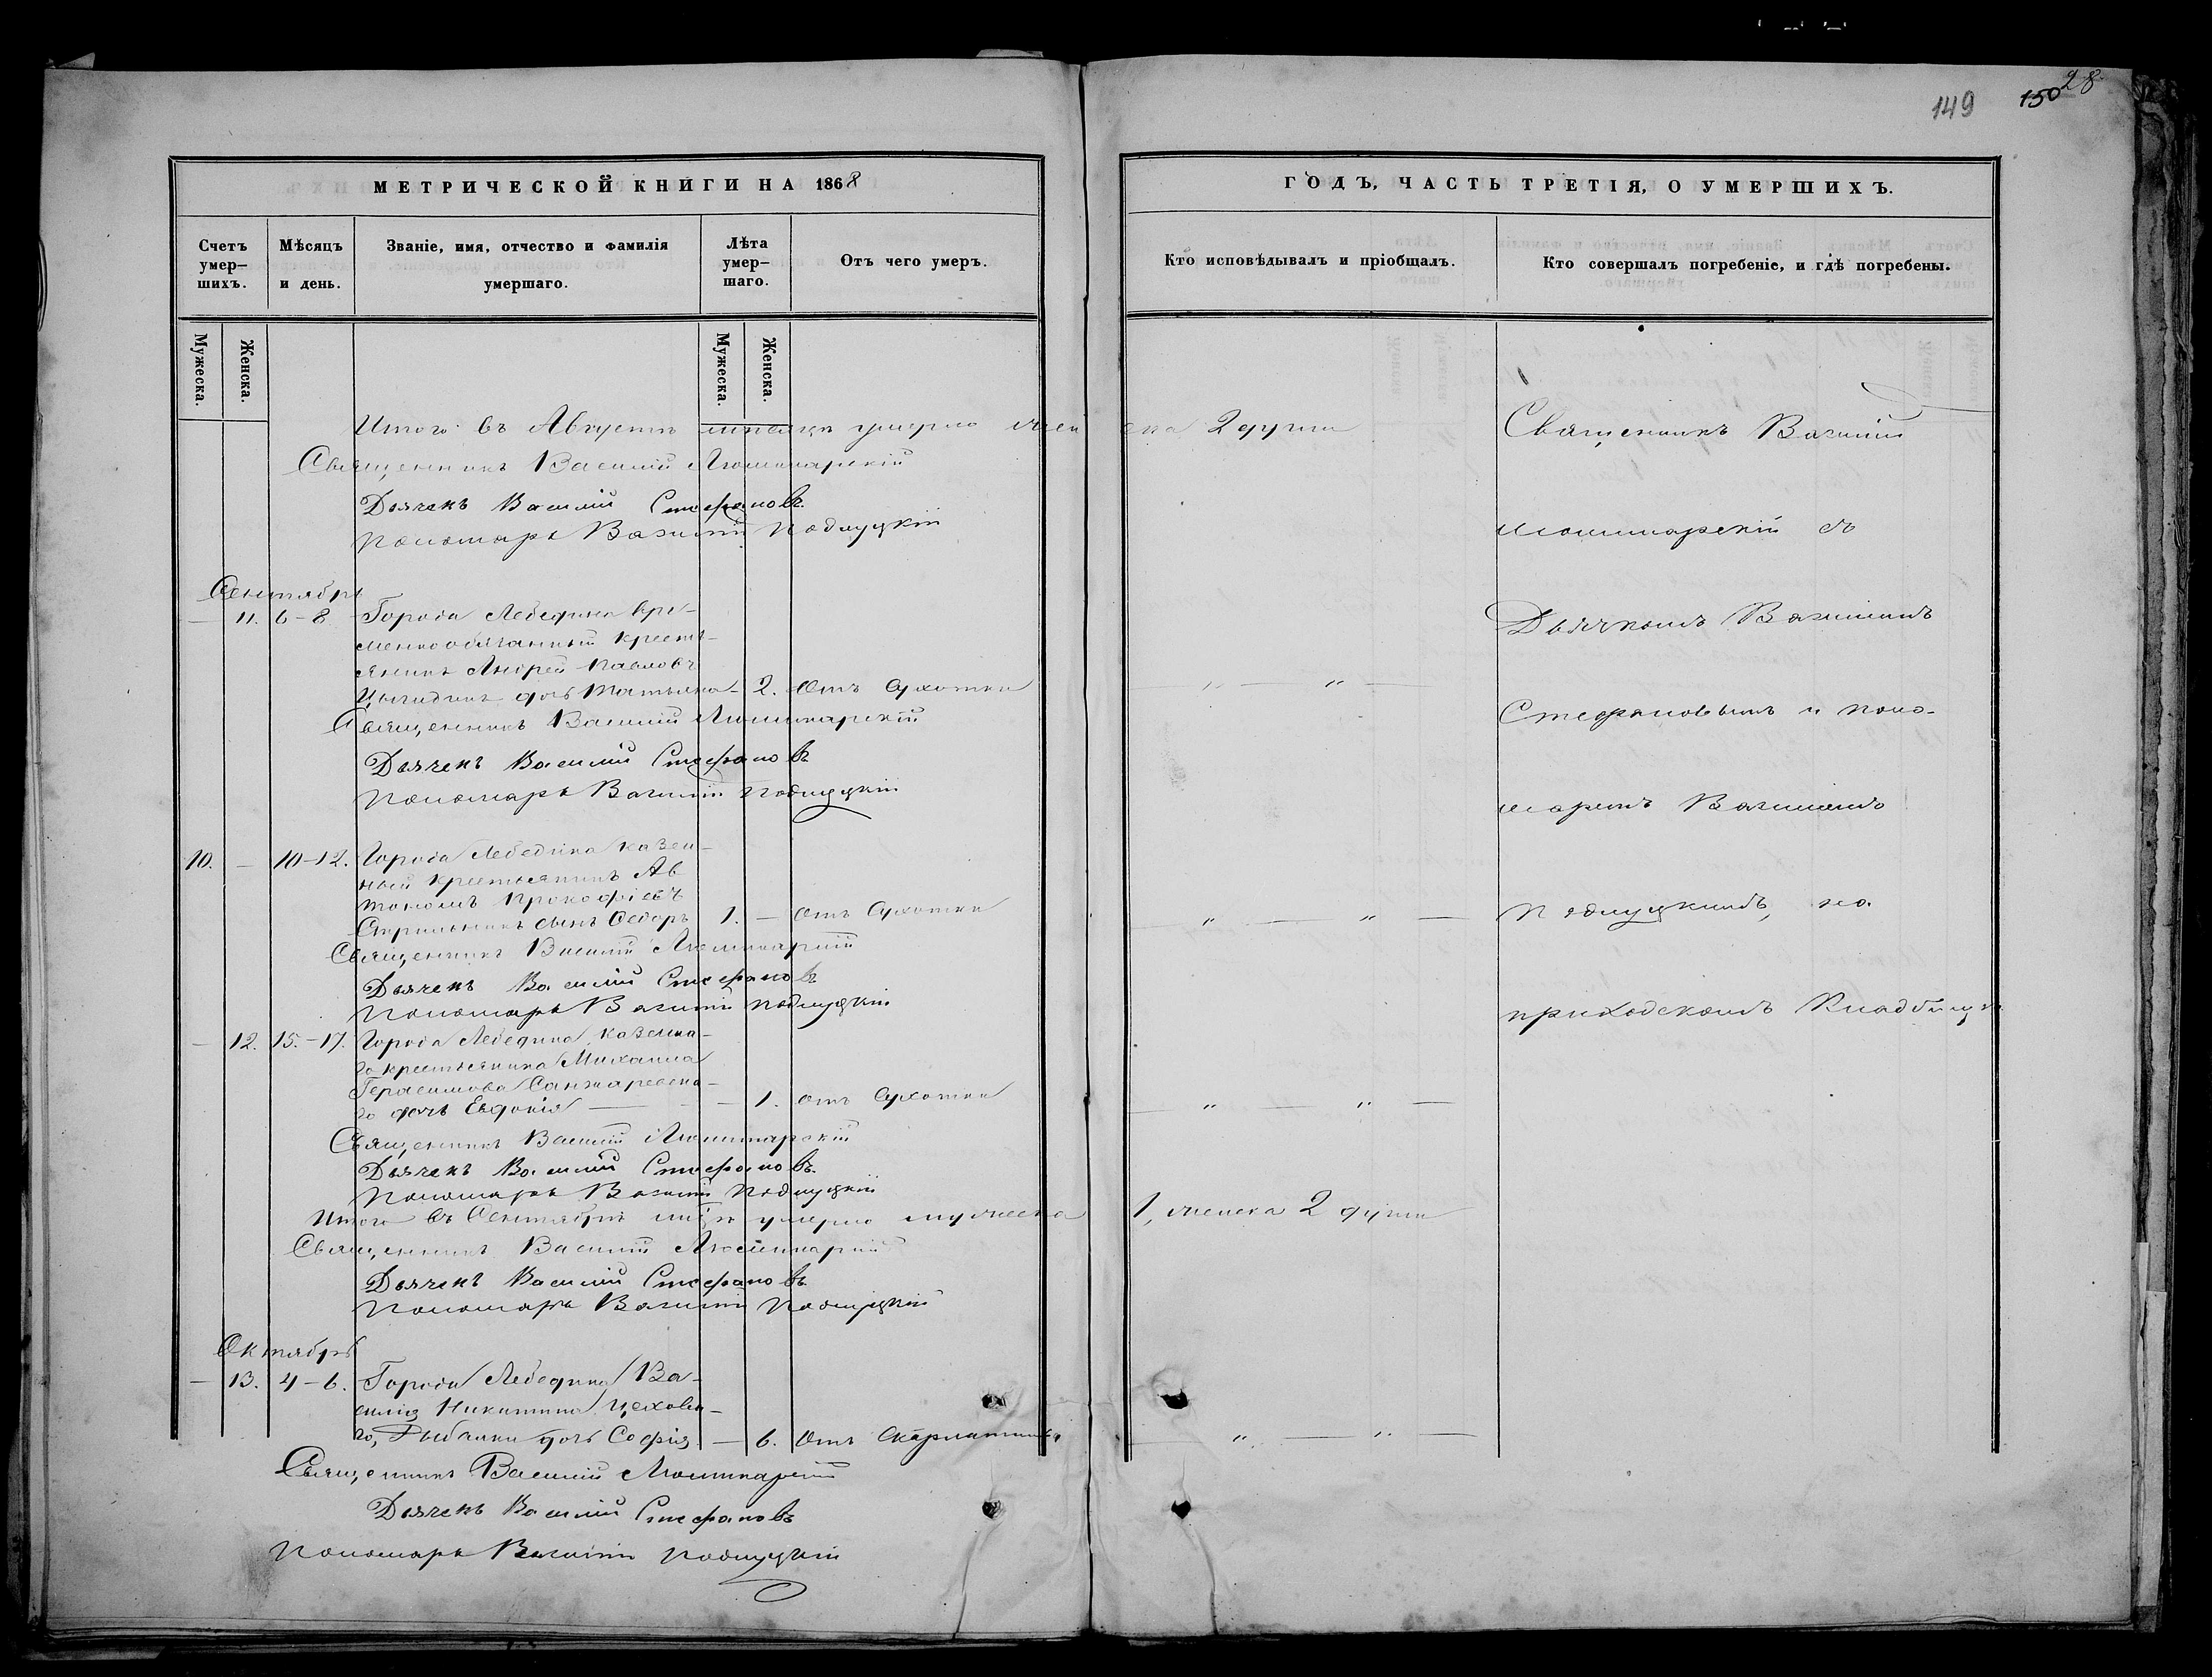 149 150 28
МЕТРИЧЕСКОЙ КНИГИ НА 1868
ГОДЪ, ЧАСТЬ ТРЕТІЯ, О УМЕРШИХЪ.
Счетъ умер-шихъ.
Мѣсяцъ и день.
Званіе, имя, отчество и фамилія умершаго.
Лѣта умер-шаго.
Отъ чего умеръ.
Кто исповѣдывалъ и пріобщалъ.
Кто совершалъ погребеніе, и гдѣ погребены.
Мужеска.
Женска.
Мужеска.
Женска.
Итого въ Августѣ мѣсяцѣ умерло женска 2 души
Священникъ Василій
Дьячекъ Василій Стефановъ
Пономарь Василій
Сентябрь
— 11. 6–8 Города Лебедина вре-
меннообязанный кресть-
янинъ Андрей Павловъ
дочь Татьяна – 2. Отъ Сухотки „ — „ —
Священникъ Василій
Дьячекъ Василій Стефановъ
Пономарь Василій
10. — 10–12. Города Лебедина казен-
ный крестьянинъ Ав
тономъ Прокофіевъ
сынъ Ѳедоръ 1. — Отъ Сухотки „ — „ —
Священникъ Василій
Дьячекъ Василій Стефановъ
Пономарь Василій
— 12. 15.–17. Города Лебедина, казенна-
го крестьянина Михаила
Герасимова
го дочь Евдокія — – 1. Отъ Сухотки „ — „ —
Священникъ Василій
Дьячекъ Василій Стефановъ
Пономарь Василій
Итого въ Сентябрѣ умерло мужеска 1, женска 2 души
Священникъ Василій
Дьячекъ Василій Стефановъ
Пономарь Василій
Октябрь
— 13. 4–6. Города Лебедина Ва-
силія Никитина Цехова-
го, дочь Софія — 6. Отъ Скарлатины „ — „ —
Священникъ Василій
Дьячекъ Василій Стефановъ
Пономарь Василій
Священникъ Василій
съ
Дьячкомъ Василіемъ
Стефановымъ и поно-
маремъ Василіемъ
на
приходскомъ Кладбищѣ